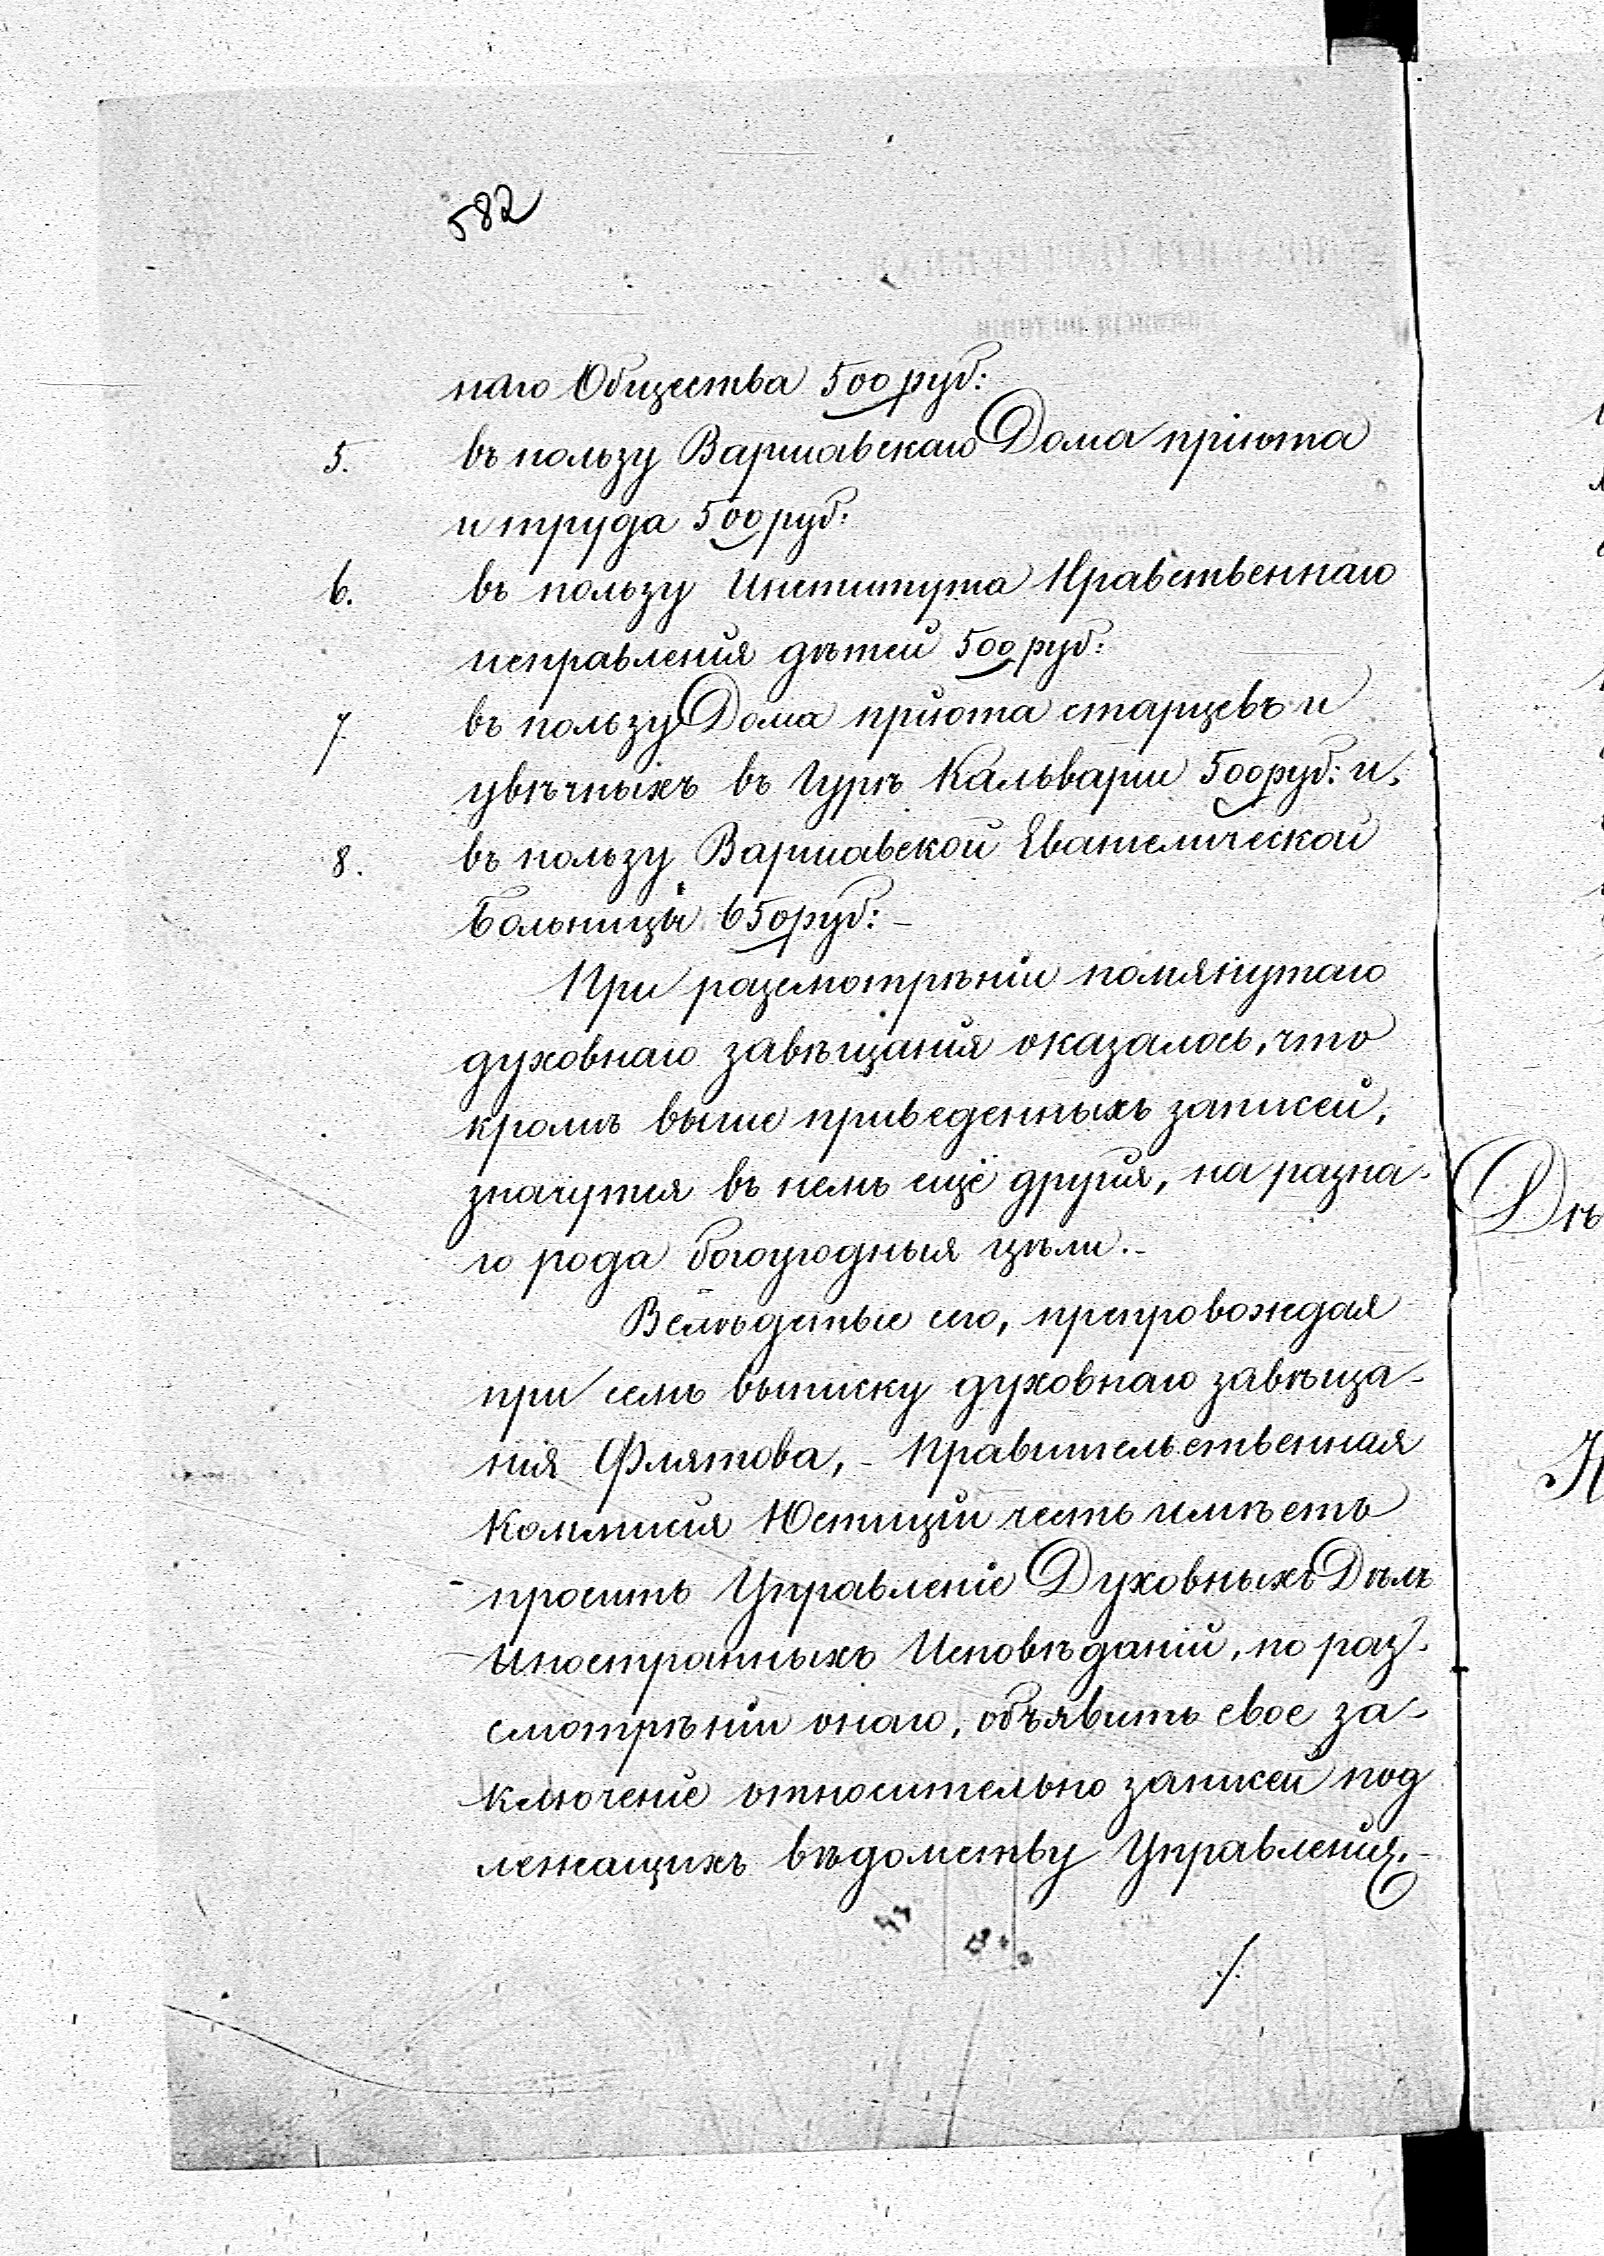 582
наго Общества 500 руб:
5. въ пользу Варшавскаго Дома пріюта
и труда 500 руб:
6. въ пользу Института Нравственнаго
исправленія дѣтей 500 руб:
7 въ пользу Дома пріюта старцевъ и
увѣчныхъ въ Гурѣ Кальваріи 500 руб: и
8. въ пользу Варшавской Евангелической
Больницы 650 руб: -
При разсмотрѣніи помянутаго
духовнаго завѣщанія оказалось, что
кромѣ выше приведенныхъ записей,
значутся въ немъ ещё другія, на разна-
го рода богоугодныя цѣли. -
Вслѣдствіе сего, препровождая
при семъ выписку духовнаго завѣща-
нія Флятова, - Правительственная
Коммисія Юстиціи честь имѣетъ
просить Управленіе Духовныхъ Дѣлъ
Иностранныхъ Исповѣданій, по раз-
смотрѣніи онаго, объявить свое за-
ключеніе относительно записей под
лежащихъ вѣдомству Управленія. -
./.
Дѣ